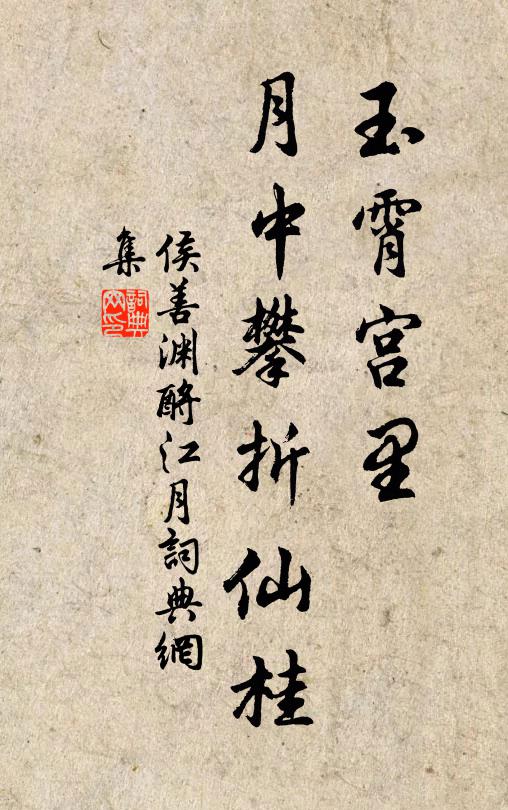 玉霄宫里
月中攀折仙桂
侯善渊酹江月詞典網
集
詞典
網印